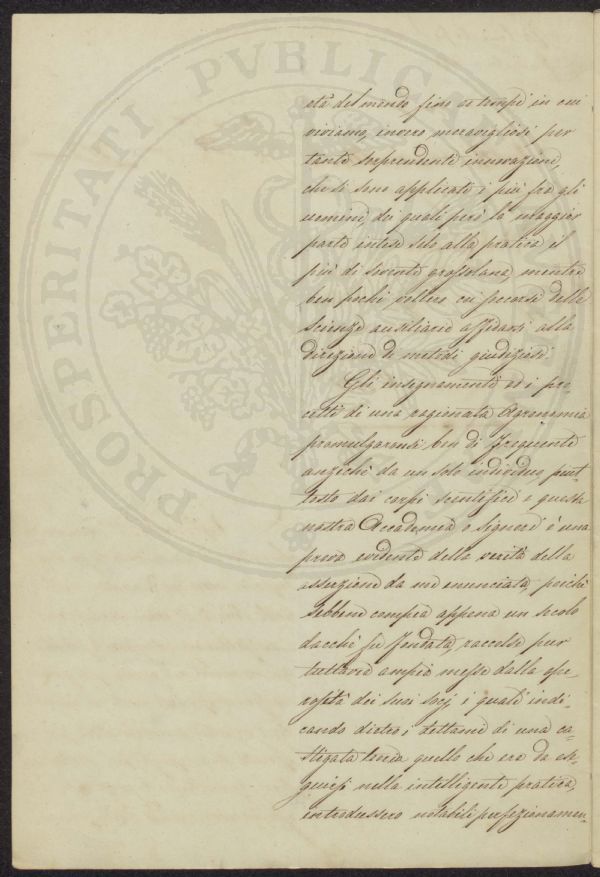 PROSPERITATI PVBLICAE
età del mondo fino ai tempi in cui
viviamo, invero maravigliosi per
tante sorprendenti innovazioni
che si sono applicati i più fra gli
uomini, dei quali però la maggior
parte intese solo alla pratica il
più di sovente grossolana, mentre
ben pochi vollero cui delle
scienze ausiliarie affidarsi alla
direzione di metodi giudiziosi.
Gli insegnamenti ed i pre
cetti di una ragionata Agronomia
promulgaronsi ben di frequente
anziché da un solo individuo piut
tosto dai corpi scientifici e questa
nostra Accademia o Signori è una
prova evidente della verità della
asserzione da me enunciata, poiché
sebbene compia appena un secolo
dacché fu fondata, raccolse pur
tuttavia ampia messe dalla ope,
rosità dei suoi socj i quali indi,
cando dietro i dettami di una ca,
stigata teoria quello che era da ese,
guirsi nella intelligente pratica,
introdussero notabili perfezionamen,